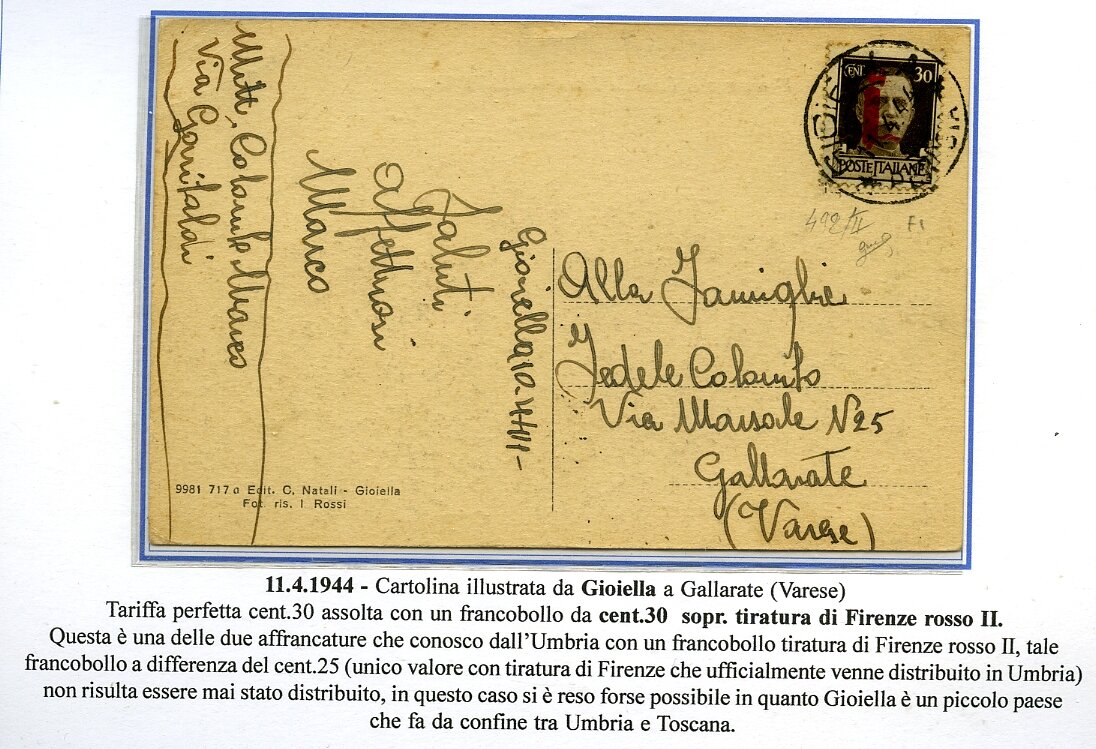 Mitt. Colombo Marco
Via Garibaldi
Gioiella 10-4-44-
Saluti
Affettuosi
Marco
9981 717 a Edit. C. Natali - Gioiella
Fot. ris. I Rossi
30
POSTE ITALIANE
492/II
FI
Alla Famiglia
Fedele Colombo
Via Marsala N 25
Gallarate
(Varese)
11.4.1944 - Cartolina illustrata da Gioiella a Gallarate (Varese)
Tariffa perfetta cent.30 assolta con un francobollo da cent.30 sopr. tiratura di Firenze rosso II.
Questa è una delle due affrancature che conosco dall'Umbria con un francobollo tiratura di Firenze rosso II, tale
francobollo a differenza del cent.25 (unico valore con tiratura di Firenze che ufficialmente venne distribuito in Umbria)
non risulta essere mai stato distribuito, in questo caso si è reso forse possibile in quanto Gioiella è un piccolo paese
che fa da confine tra Umbria e Toscana.